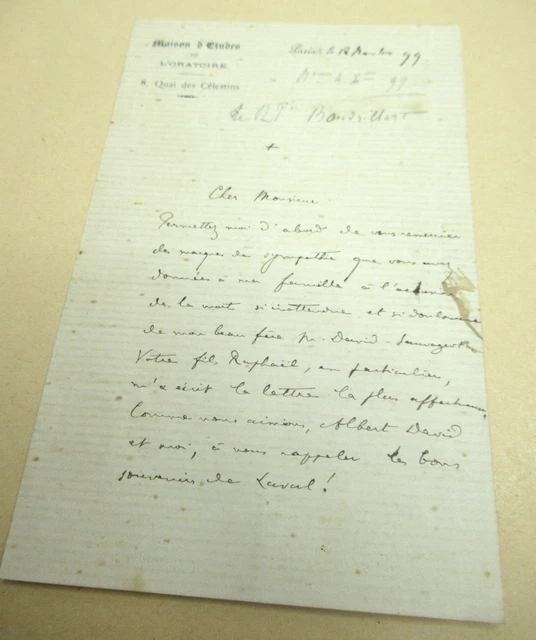 Maison d'Etudes
DE
L'ORATOIRE
8, Quai des Célestins
99
99
Le R. P. Baudrillart
+
Cher Monsieur
Permettez moi d'abord de vous remercier
des marques de sympathie que vous avez
données à ma famille à l'occasion
de la mort si inattendue et si douloureuse
de mon beau frère M. David-Sauvageot
Votre fils Raphaël, en particulier,
m'a écrit la lettre la plus affectueuse
Comme nous aimions, Albert David
et moi, à nous rappeler les bons
souvenirs de Laval !